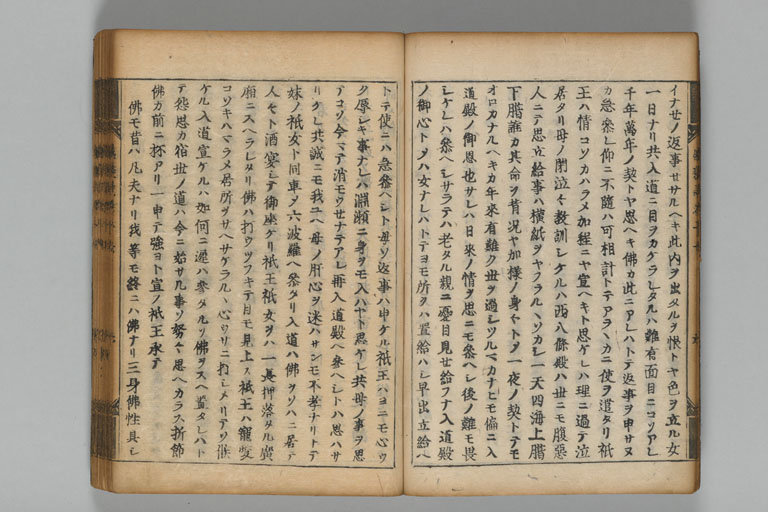 イナせノ返事せサルヘキ此内ヲ出タルヲ恨トヤ色ヲ立ル女
一日ナリ共入道ニ目ヲカケラレタルハ難有面目ニコソアレ
千年萬年ノ契トヤ思ヘキ佛カ此ニアレハトテ返事ヲ申サヌ
カ急参レ仰ニ不随ハ可相計トテアラヽカニ使ヲ遣タリ祇
王ハ情コソカラメ加程ニヤ宣ヘキト思ケレハ理ニ過テ泣
居タリ母ノ閇泣々教訓シケルハ西八條殿ハ世ニモ腹惡
人ニテ思立給事ハ横紙ヲヤフラルヽソカシ一天四海上臈
下臈誰カ其命ヲ背況ヤ加様ノ身ヤトノ一夜ノ契トテモ
オロカナルヘキカ年来有難ク世ヲ過シツルヘカナヒモ偏ニ入
道殿ノ御恩也サレハ日来ノ情ヲ思ニモ参ヘシ後ノ難モ畏
シケレハ参ヘシサラテハ老タル親ニ憂目見せ給フナ入道殿
ノ御心トノハ女ナレハトテヨモ所ヲハ置給ハシ早出立給ヘ
トテ使ニハ急参ヘシト母ソ返事ハ申ケル祇王ハヨニモ心ウ
ク厚シキ事ナレハ淵瀬ニ身ヲモ入ハヤト思ケレ共母ノ事ヲ思
テコソ今マテ消モウせナテアレ再入道殿ヘ参ヘシトハ思ハサ
リケレ共誠ニモ我ユヘ母ノ肝心ヲ迷ハサンモ不孝ナリトテ
妹ノ祇女ト同車ノ六波羅ヘ参タリ入道ハ佛ヲソハニ居テ
人々ト酒宴シテ御座ケリ祇王祇女ヲハ一長押落タル廣
廂ニスヘラレタリ佛ハ打ウツフキテ目モ見上ス祇王ハ寵愛
コソキハマラメ居所ヲサヘサケラルヽ心ウサニ打シメリテソ候
ケル入道宣ケルハ如何ニ遅ハ参タルソ佛ヲスヘ置タレハト
テ怨思カ宿世ノ道ハ今ニ始サル事ソ努々思ヘカラス折節
佛カ前ニ杯アリ一申テ強ヨト宣ノ祇王承テ
佛モ昔ハ凡夫ナリ我等モ終ニハ佛ナリ三身佛性具シ